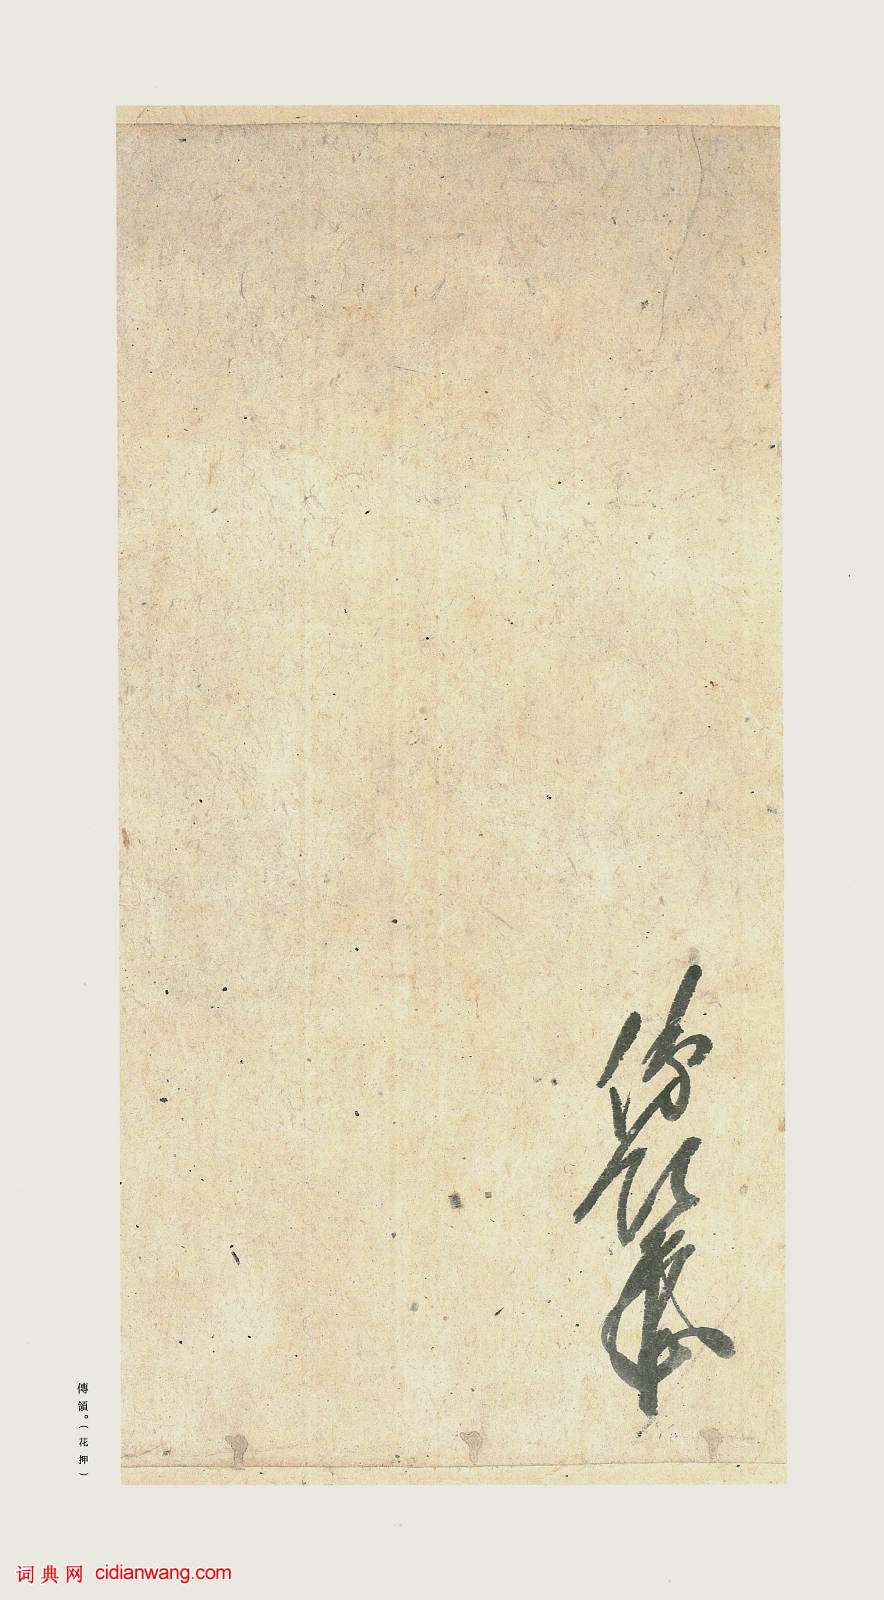 傳領
傳領。（花押）
词典网 cidianwang.com